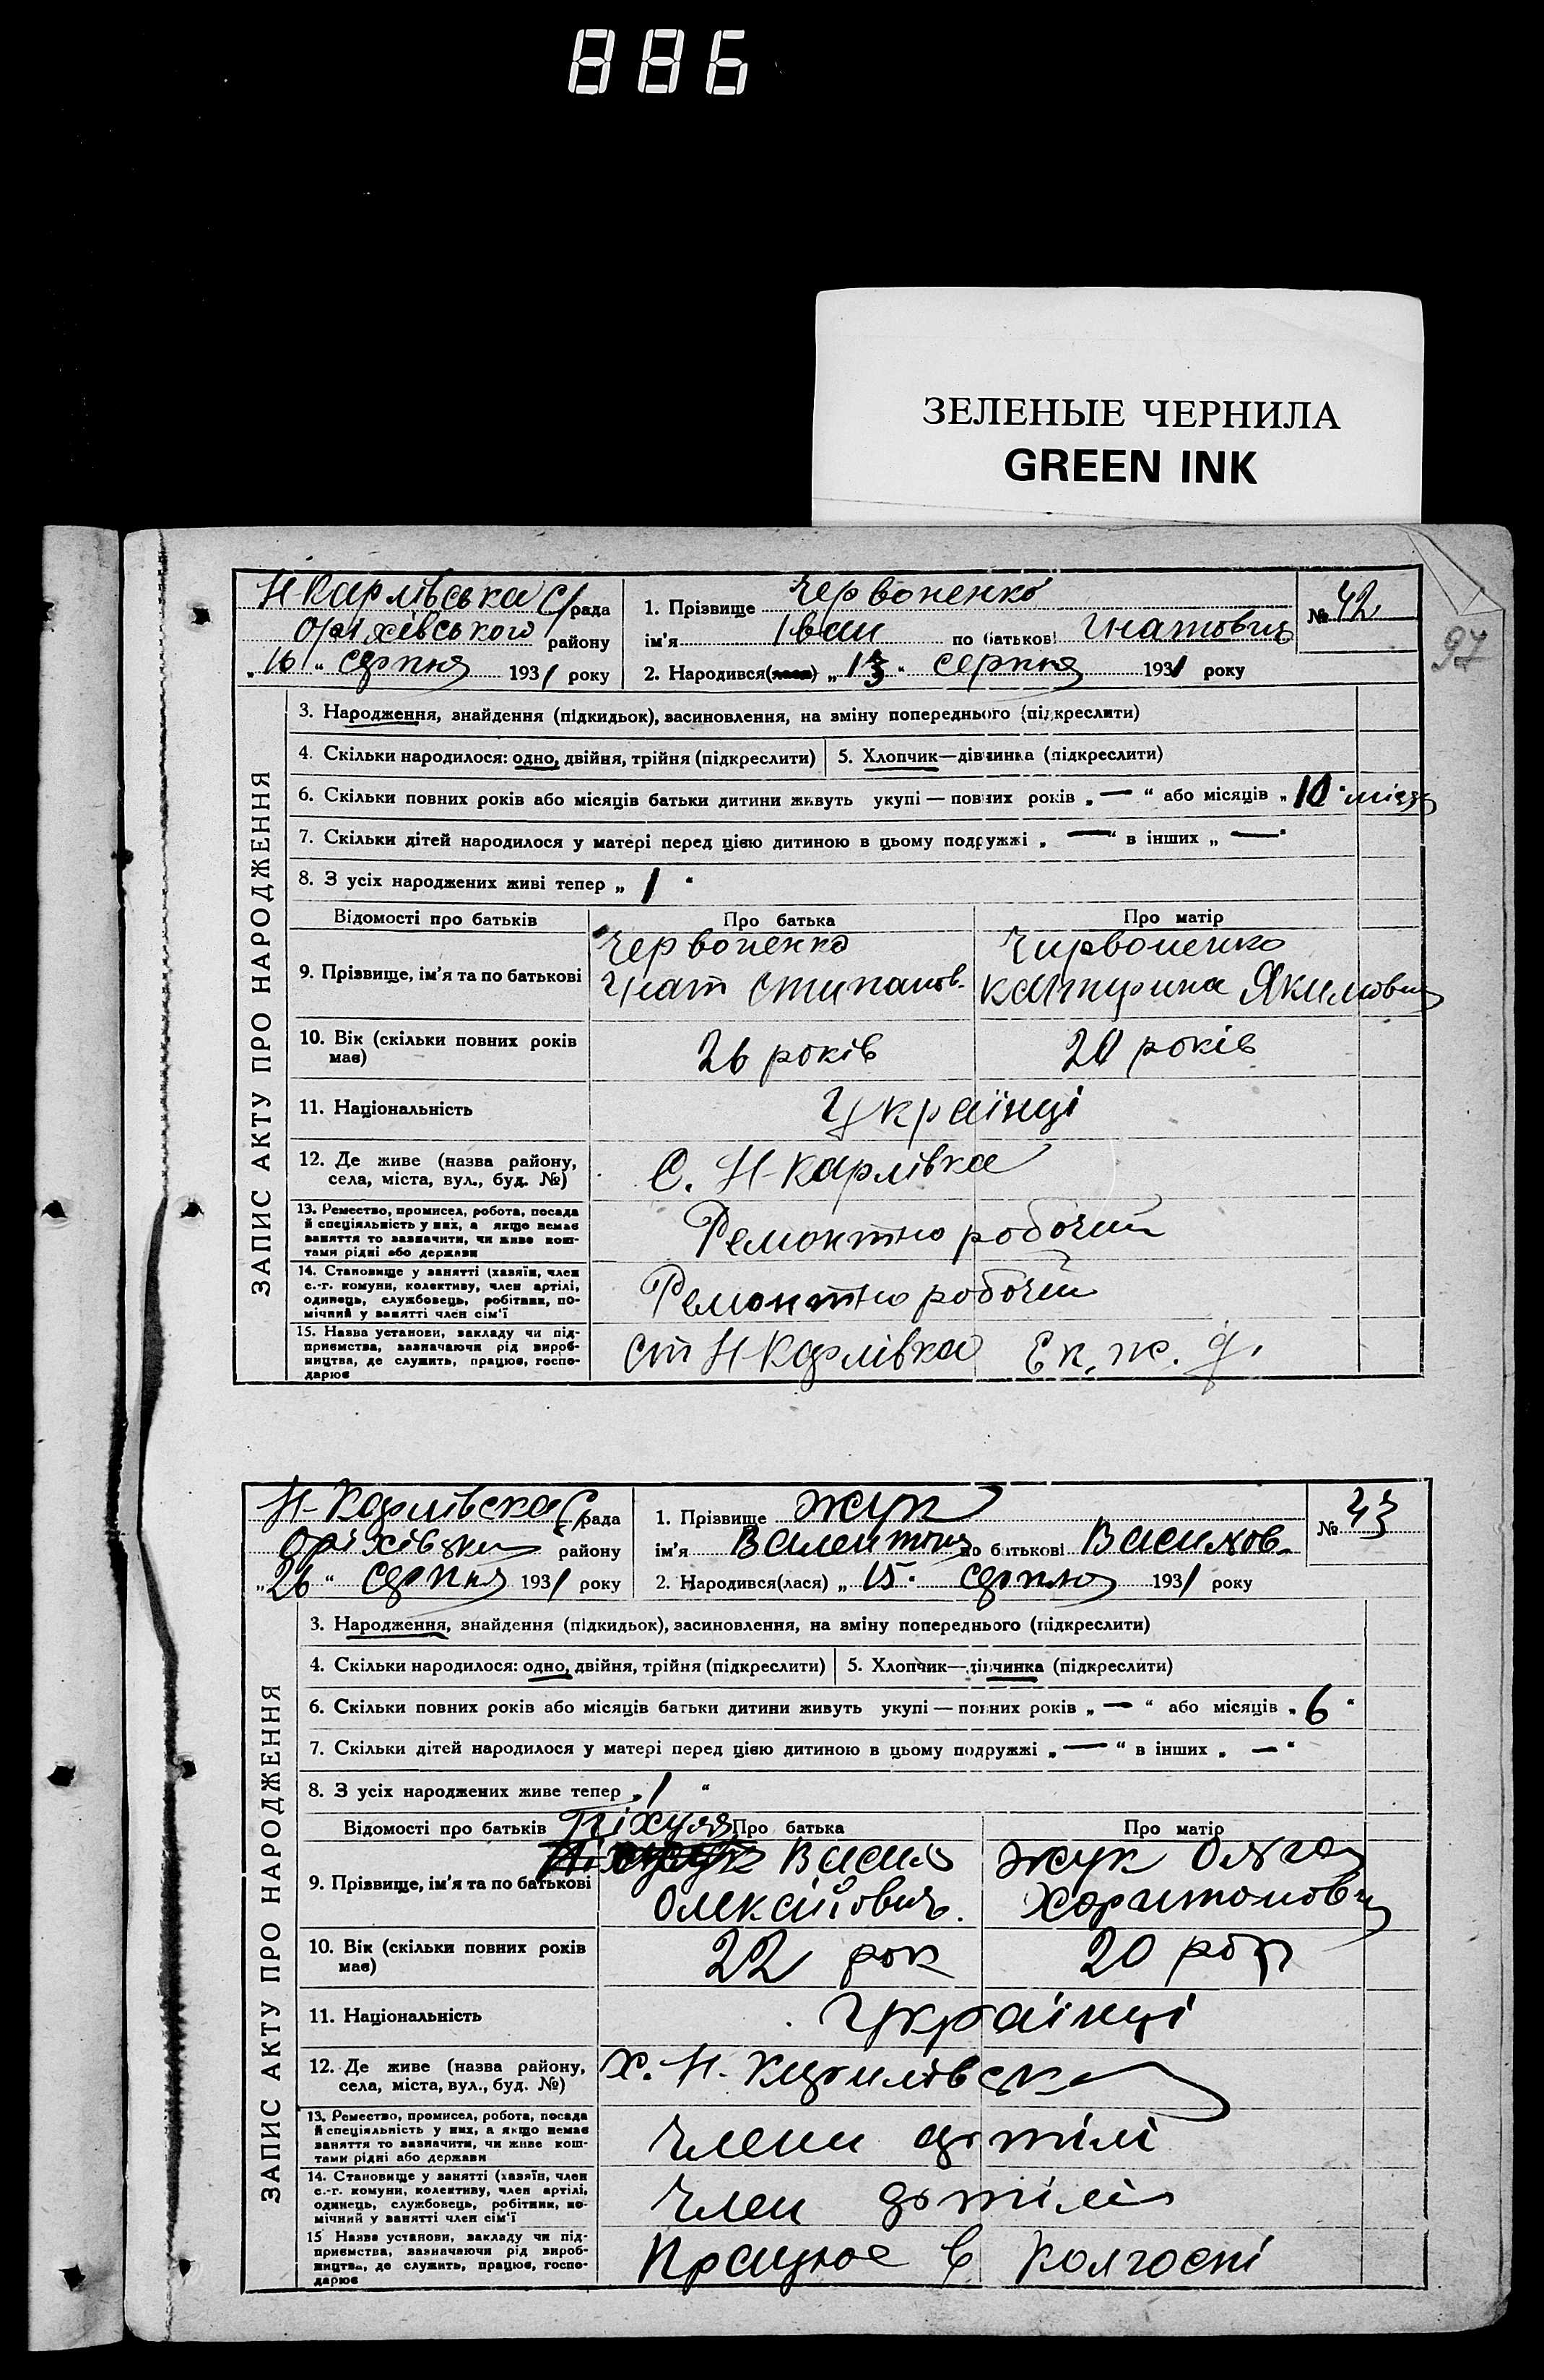 886
ЗЕЛЕНЫЕ ЧЕРНИЛА
GREEN INK
97
Н-Карлівська С/рада
Оріхівського району
„16" серпня 1931 року
1. Прізвище Червоненко
ім'я Іван по батькові Гнатович
2. Народився(лася) „13" серпня 1931 року
№ 42
ЗАПИС АКТУ ПРО НАРОДЖЕННЯ
3. Народження, знайдення (підкидьок), засиновлення, на зміну попереднього (підкреслити)
4. Скільки народилося: одно, двійня, трійня (підкреслити) 5. Хлопчик—дівчинка (підкреслити)
6. Скільки повних років або місяців батьки дитини живуть укупі — повних років „—" або місяців „10"
7. Скільки дітей народилося у матері перед цією дитиною в цьому подружжі „—" в інших „—"
8. З усіх народжених живі тепер „1"
Відомості про батьків Про батька Про матір
9. Прізвище, ім'я та по батькові
Червоненко Чирвоненко
Гнат Стипанов. Катирина Якимовна
10. Вік (скільки повних років має) 26 років 20 років
11. Національність Українці
12. Де живе (назва району, села, міста, вул., буд. №) С. Н-Карлівка
13. Ремество, промисел, робота, посада
й спеціяльність у них, а якщо немає
заняття то зазначити, чи живе кош-
тами рідні або держави
Ремонтно робочий
14. Становище у занятті (хазяїн, член
с.-г. комуни, колективу, член артілі,
одинець, службовець, робітник, по-
мічний у занятті член сім'ї
Ремонтно робочий
15. Назва установи, закладу чи під-
приємства, зазначаючи рід вироб-
ництва, де служить, працює, госпо-
дарює
ст Н Карлівка Ек. ж. д.
Н-Карлівска С/рада
Оріхівски району
„26" серпня 1931 року
1. Прізвище Жук
ім'я Валентина по батькові Василов.
2. Народився(лася) „15" серпня 1931 року
№ 43
ЗАПИС АКТУ ПРО НАРОДЖЕННЯ
3. Народження, знайдення (підкидьок), засиновлення, на зміну попереднього (підкреслити)
4. Скільки народилося: одно, двійня, трійня (підкреслити) 5. Хлопчик—дівчинка (підкреслити)
6. Скільки повних років або місяців батьки дитини живуть укупі — повних років „—" або місяців „6"
7. Скільки дітей народилося у матері перед цією дитиною в цьому подружжі „—" в інших „—"
8. З усіх народжених живе тепер „1"
Відомості про батьків Про батька Про матір
9. Прізвище, ім'я та по батькові
Василь Жук Ольга
Олексійович. Харитоновна
10. Вік (скільки повних років має) 22 рок 20 рок
11. Національність Українці
12. Де живе (назва району, села, міста, вул., буд. №) х. Н.
13. Ремество, промисел, робота, посада
й спеціяльність у них, а якщо немає
заняття то зазначити, чи живе кош-
тами рідні або держави
Члени артілі
14. Становище у занятті (хазяїн, член
с.-г. комуни, колективу, член артілі,
одинець, службовець, робітник, по-
мічний у занятті член сім'ї
Член артілі
15 Назва установи, закладу чи під-
приємства, зазначаючи рід вироб-
ництва, де служить, працює, госпо-
дарює
Працює в колгоспі